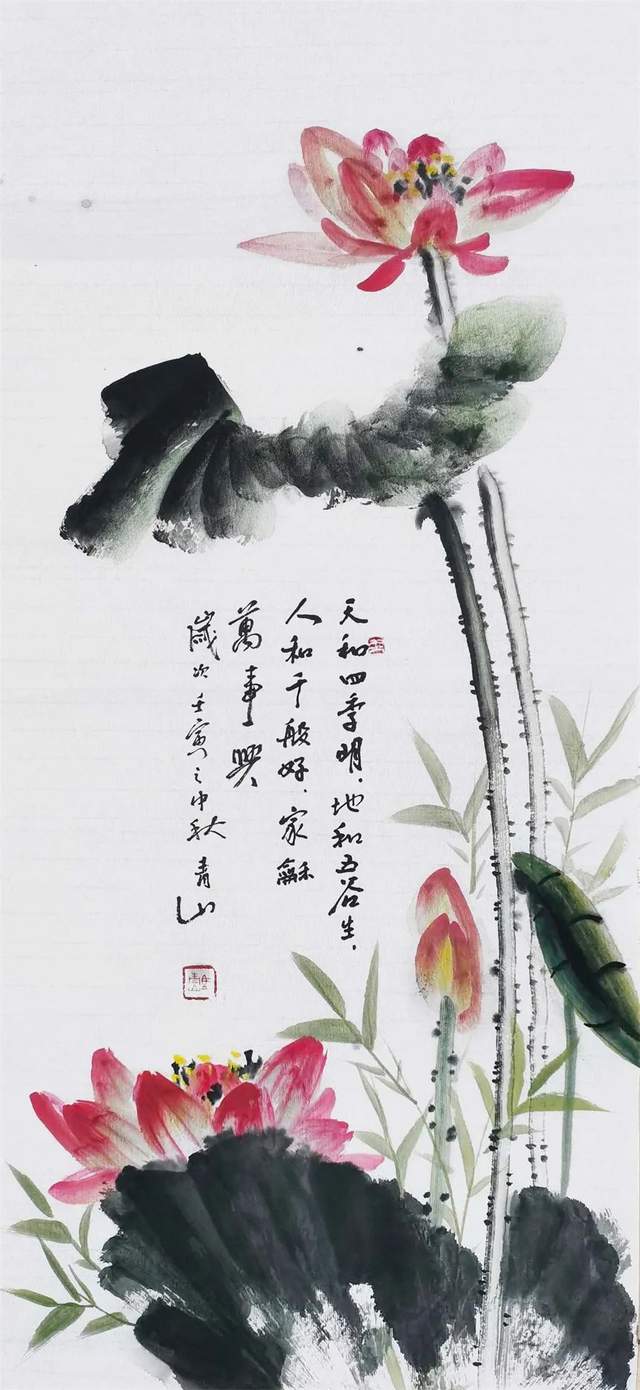 天和四季明，地和五谷生，
人和千般好，家龢
萬事興
歲次壬寅之中秋青山